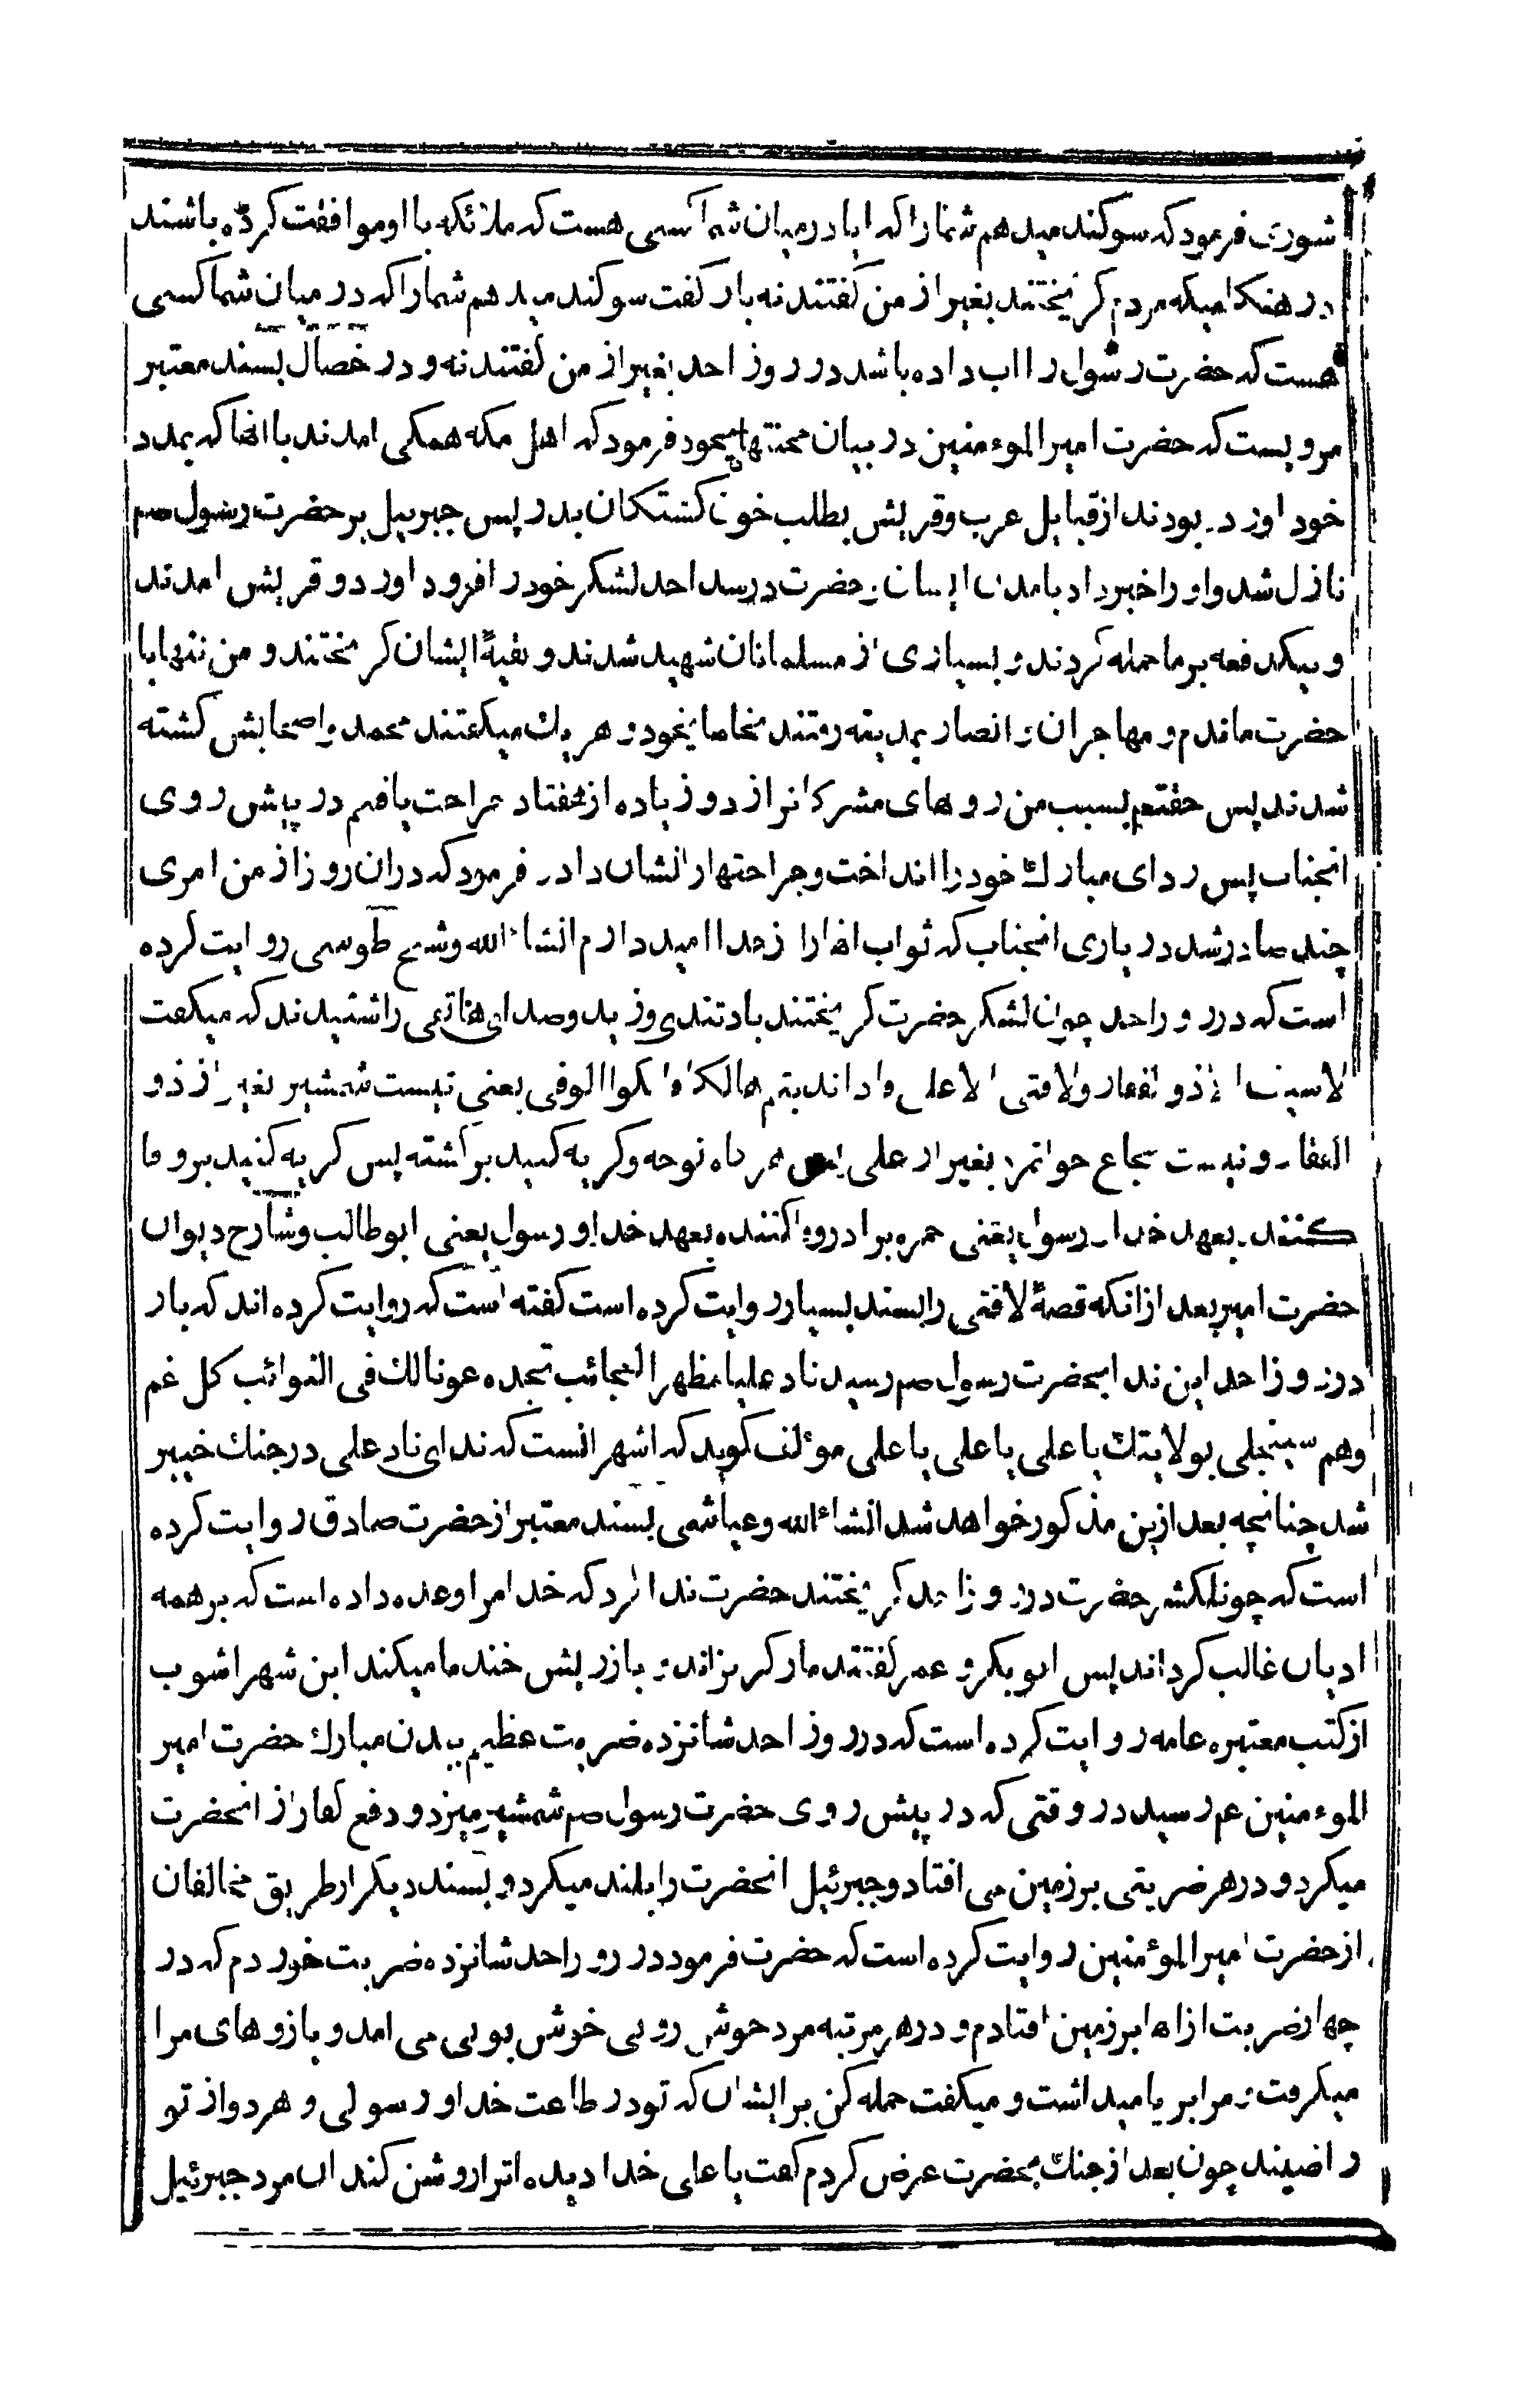 شوری فرمود که سوکند میدهم شما را که ایا در میان شما کسی هست که ملائکه با او موافقت کرده باشند
در هنکامیکه مردم کریختند بغیر از من کفتند نه باز کفت سوکند میدهم شما را که در میان شما کسی
هست که حضرت رسول را اب داده باشد در روز احد بغیر از من کفتند نه و در خصال بسند معتبر
مرویست که حضرت امیر الموءمنین در بیان محنتهای خود فرمود که اهل مکه همکی امدند با انها که بمدد
خود اورده بودند از قبایل عرب و قریش بطلب خون کشتکان بدر پس جبرییل بر حضرت رسول صم
نازل شد و او را خبر داد بامدن ایشان و حضرت در سد احد لشکر خود را فرود اورد و قریش امدند
و بیکدفعه بر ما حمله کردند و بسیاری از مسلمانان شهید شدند و بقیهٔ ایشان کریختند و من تنها با
حضرت ماندم و مهاجران و انصار بمدینه رفتند بخانهای خود و هر یک میکفتند محمد و اصحابش کشته
شدند پس حقتعم بسبب من روهای مشرکانرا زد و زیاده از هفتاد جراحت یافتم در پیش روی
انجناب پس ردای مبارک خود را انداخت و جراحتها را نشان داد و فرمود که دران روز از من امری
چند صادر شد در یاری انجناب که ثواب انها را از خدا امید دارم انشاءالله و شیخ طوسی روایت کرده
است که در روز احد چون لشکر حضرت کریختند باد تندی وزید و صدای هاتفی را شنیدند که میکفت
لا سیف الا ذو الفقار ولا فتی الا علی و اذا ندبتم هالکا فابکوا الوفی یعنی نیست شمشیر بغیر از ذو
الفقار و نیست شجاع جوانمرد بغیر از علی پس هر کاه نوحه و کریه کنید بر کشته پس کریه کنید بر وفا
کننده بعهد خدا و رسول یعنی حمزه برادر وفا کننده بعهد خدا و رسول یعنی ابو طالب و شارح دیوان
حضرت امیر بعد از انکه قصهٔ لافتی را بسند بسیار روایت کرده است کفته است که روایت کرده اند که باز
در روز احد این ندا بحضرت رسول صم رسید ناد علیا مظهر العجائب تجده عونا لک فی النوائب کل غم
و هم سینجلی بولایتک یا علی یا علی یا علی موءلف کوید که اشهر انست که ندای ناد علی در جنک خیبر
شد چنانچه بعد ازین مذکور خواهد شد انشاءالله و عیاشی بسند معتبر از حضرت صادق روایت کرده
است که چون لکشر حضرت در روز احد کریختند حضرت ندا کرد که خدا مرا وعده داده است که بر همه
ادیان غالب کرداند پس ابو بکر و عمر کفتند ما را کریزاند و باز ریش خند ما میکند ابن شهر اشوب
از کتب معتبره عامه روایت کرده است که در روز احد شانزده ضربت عظیم ببدن مبارک حضرت امیر
الموءمنین عم رسید در وقتی که در پیش روی حضرت رسول صم شمشیر میزد و دفع کفار از انحضرت
میکرد و در هر ضربتی بر زمین می افتاد و جبرئیل انحضرت را بلند میکرد و بسند دیکر از طریق مخالفان
از حضرت امیر الموءمنین روایت کرده است که حضرت فرمود در روز احد شانزده ضربت خوردم که در
چهار ضربت از انها بر زمین افتادم و در هر مرتبه مرد خوش روی خوش بوی می امد و بازوهای مرا
میکرفت و مرا بر پا میداشت و میکفت حمله کن بر ایشان که تو در طاعت خدا و رسولی و هر دو از تو
راضیند چون بعد از جنک بحضرت عرض کردم کفت یا علی خدا دیده اترا روشن کند ان مرد جبرئیل